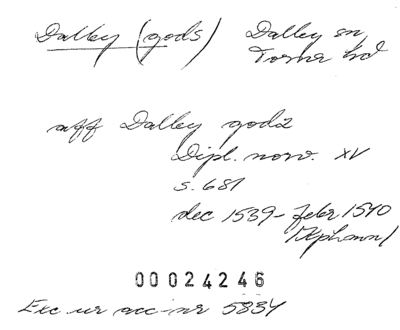 Dalby (gods) Dalby sn,
Torna hd
aff Dalby gods
Dipl. norv. XV
s. 681
dec 1539 - febr 1540
00024246
Exc ur acc-nr 5834